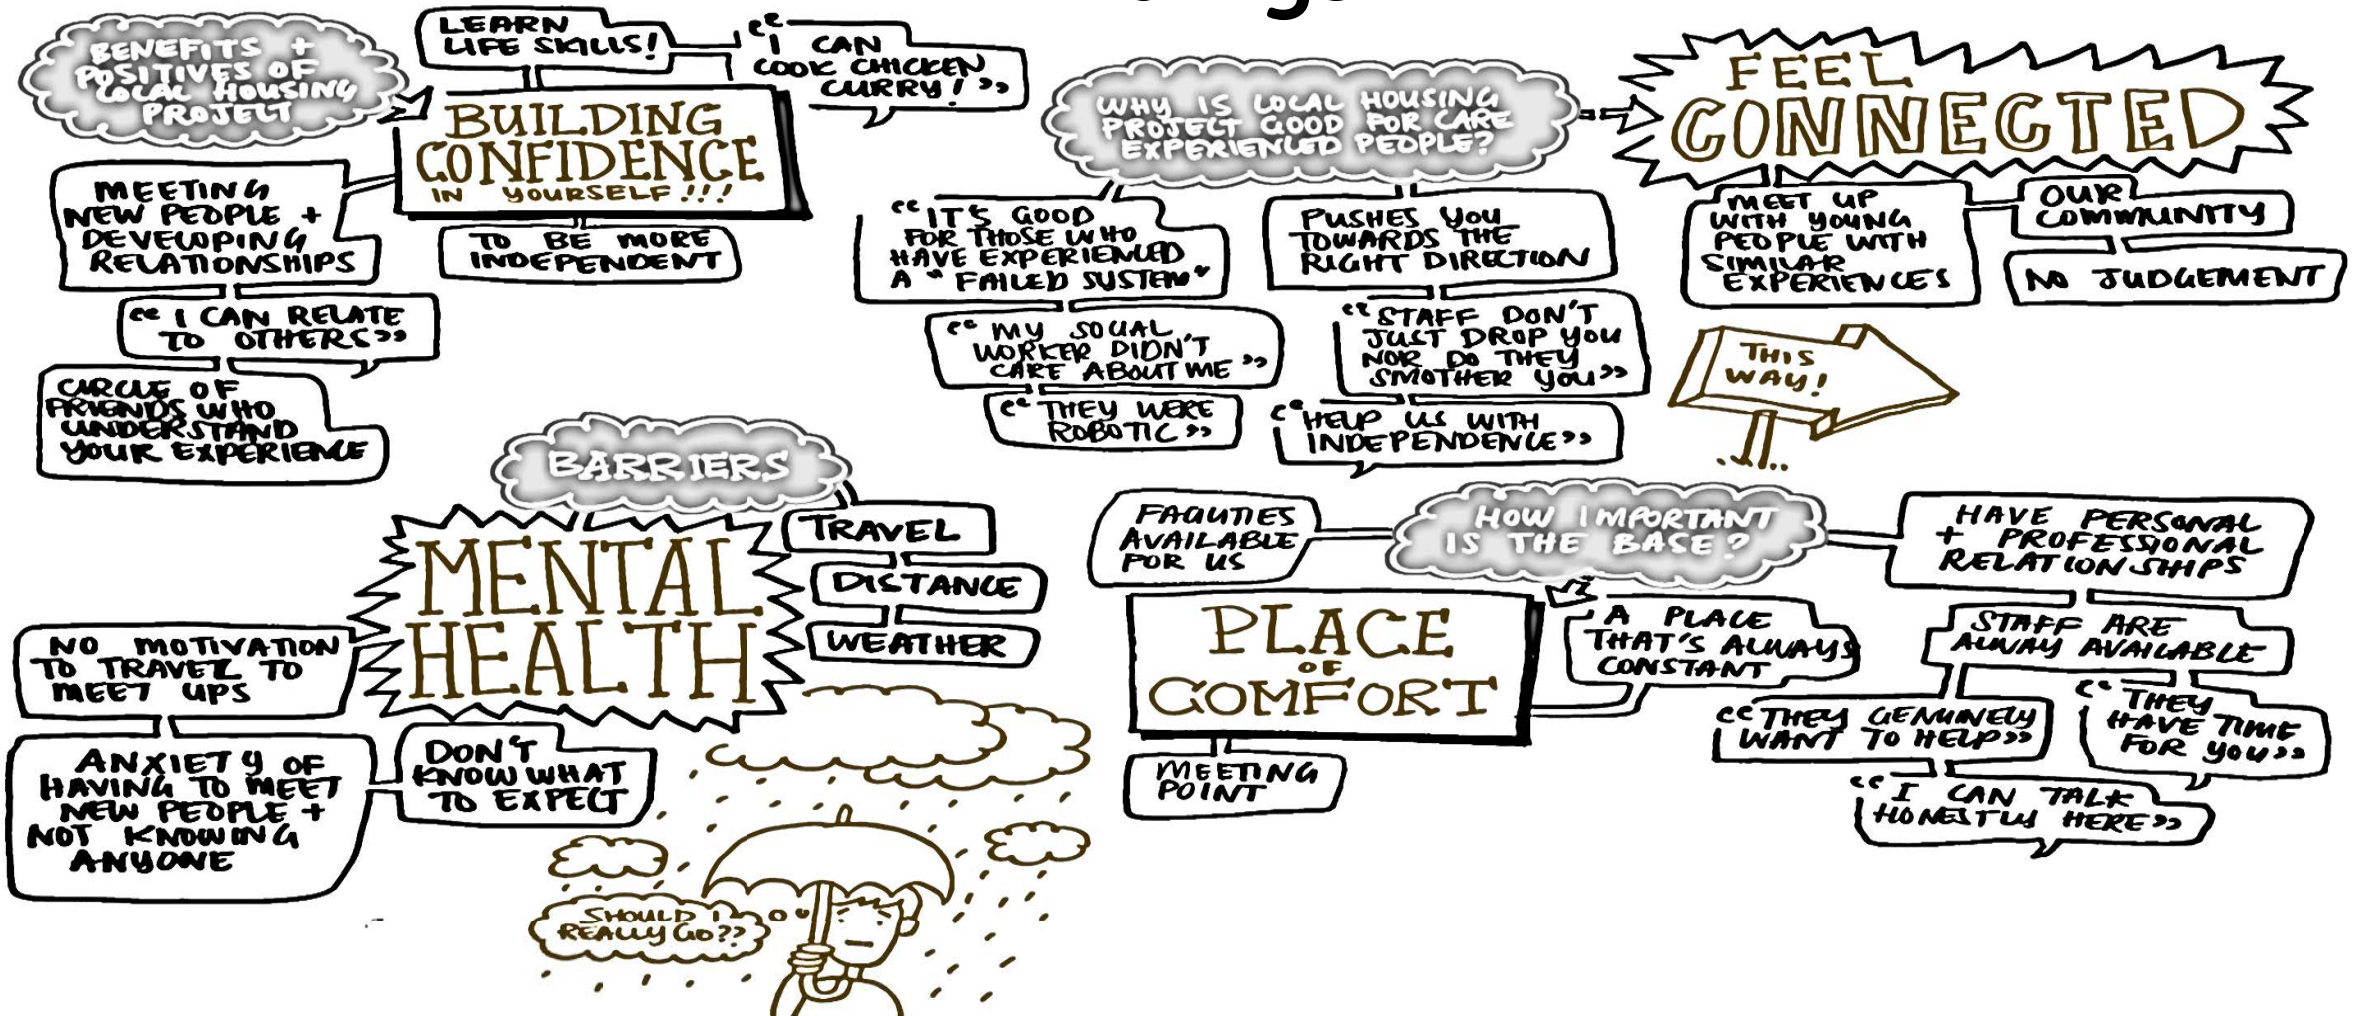 BENEFITS +
POSITIVES OF
LOCAL HOUSING
PROJECT
LEARN
LIFE SKILLS!
“I CAN
COOK CHICKEN
CURRY!”
BUILDING
CONFIDENCE
IN YOURSELF!!!
MEETING
NEW PEOPLE +
DEVELOPING
RELATIONSHIPS
TO BE MORE
INDEPENDENT
“I CAN RELATE
TO OTHERS”
CIRCLE OF
FRIENDS WHO
UNDERSTAND
YOUR EXPERIENCE
WHY IS LOCAL HOUSING
PROJECT GOOD FOR CARE
EXPERIENCED PEOPLE?
FEEL
CONNECTED
“IT'S GOOD
FOR THOSE WHO
HAVE EXPERIENCED
A “FAILED SYSTEM”
“MY SOCIAL
WORKER DIDN'T
CARE ABOUT ME”
“THEY WERE
ROBOTIC”
PUSHES YOU
TOWARDS THE
RIGHT DIRECTION
“STAFF DON'T
JUST DROP YOU
NOR DO THEY
SMOTHER YOU”
“HELP US WITH
INDEPENDENCE”
MEET UP
WITH YOUNG
PEOPLE WITH
SIMILAR
EXPERIENCES
OUR
COMMUNITY
NO JUDGEMENT
THIS
WAY!
BARRIERS
MENTAL
HEALTH
TRAVEL
DISTANCE
WEATHER
NO MOTIVATION
TO TRAVEL TO
MEET UPS
ANXIETY OF
HAVING TO MEET
NEW PEOPLE +
NOT KNOWING
ANYONE
DON'T
KNOW WHAT
TO EXPECT
SHOULD I
REALLY GO??
HOW IMPORTANT
IS THE BASE?
FACILITIES
AVAILABLE
FOR US
PLACE
OF
COMFORT
A PLACE
THAT'S ALWAYS
CONSTANT
MEETING
POINT
HAVE PERSONAL
+ PROFESSIONAL
RELATIONSHIPS
STAFF ARE
ALWAY AVAILABLE
“THEY GENUINELY
WANT TO HELP”
“THEY
HAVE TIME
FOR YOU”
“I CAN TALK
HONESTLY HERE”